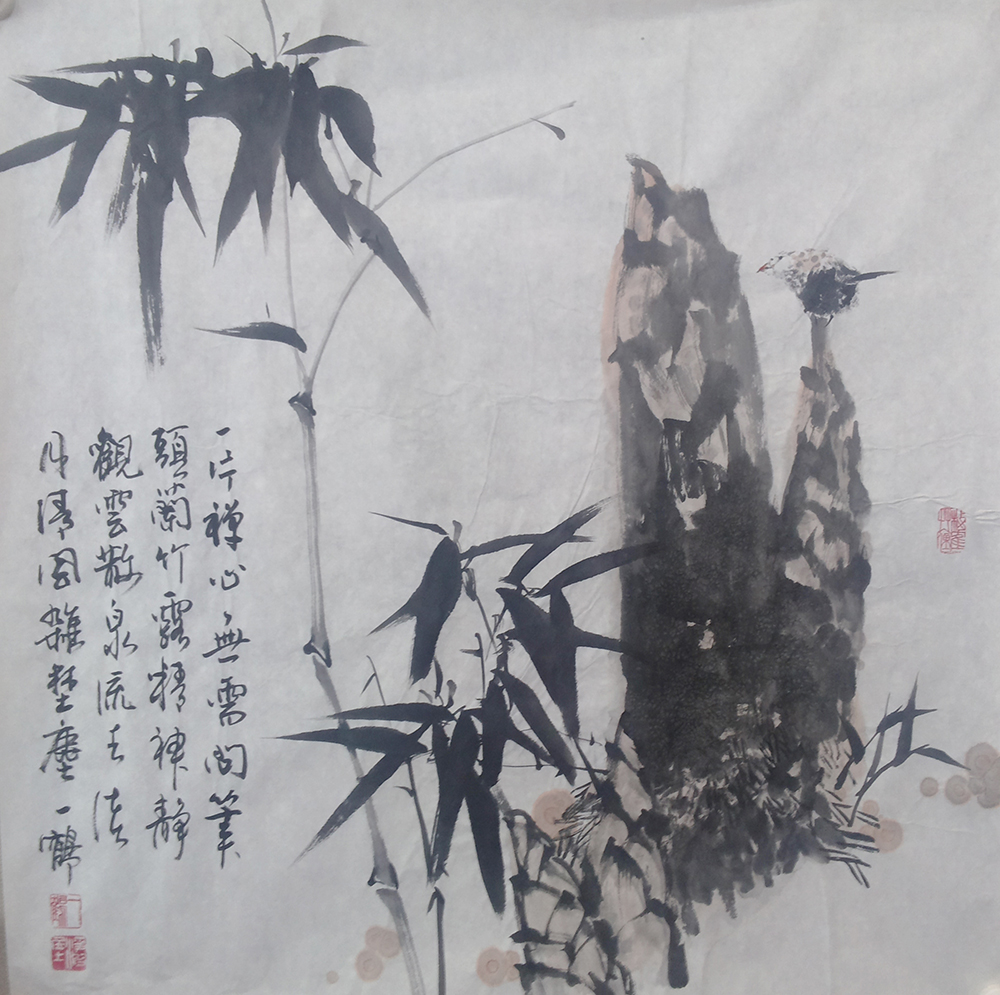 一片禅心無需問筆
頭蘭竹露精神靜
觀雲散泉流去淡
月清風難塵一鶴